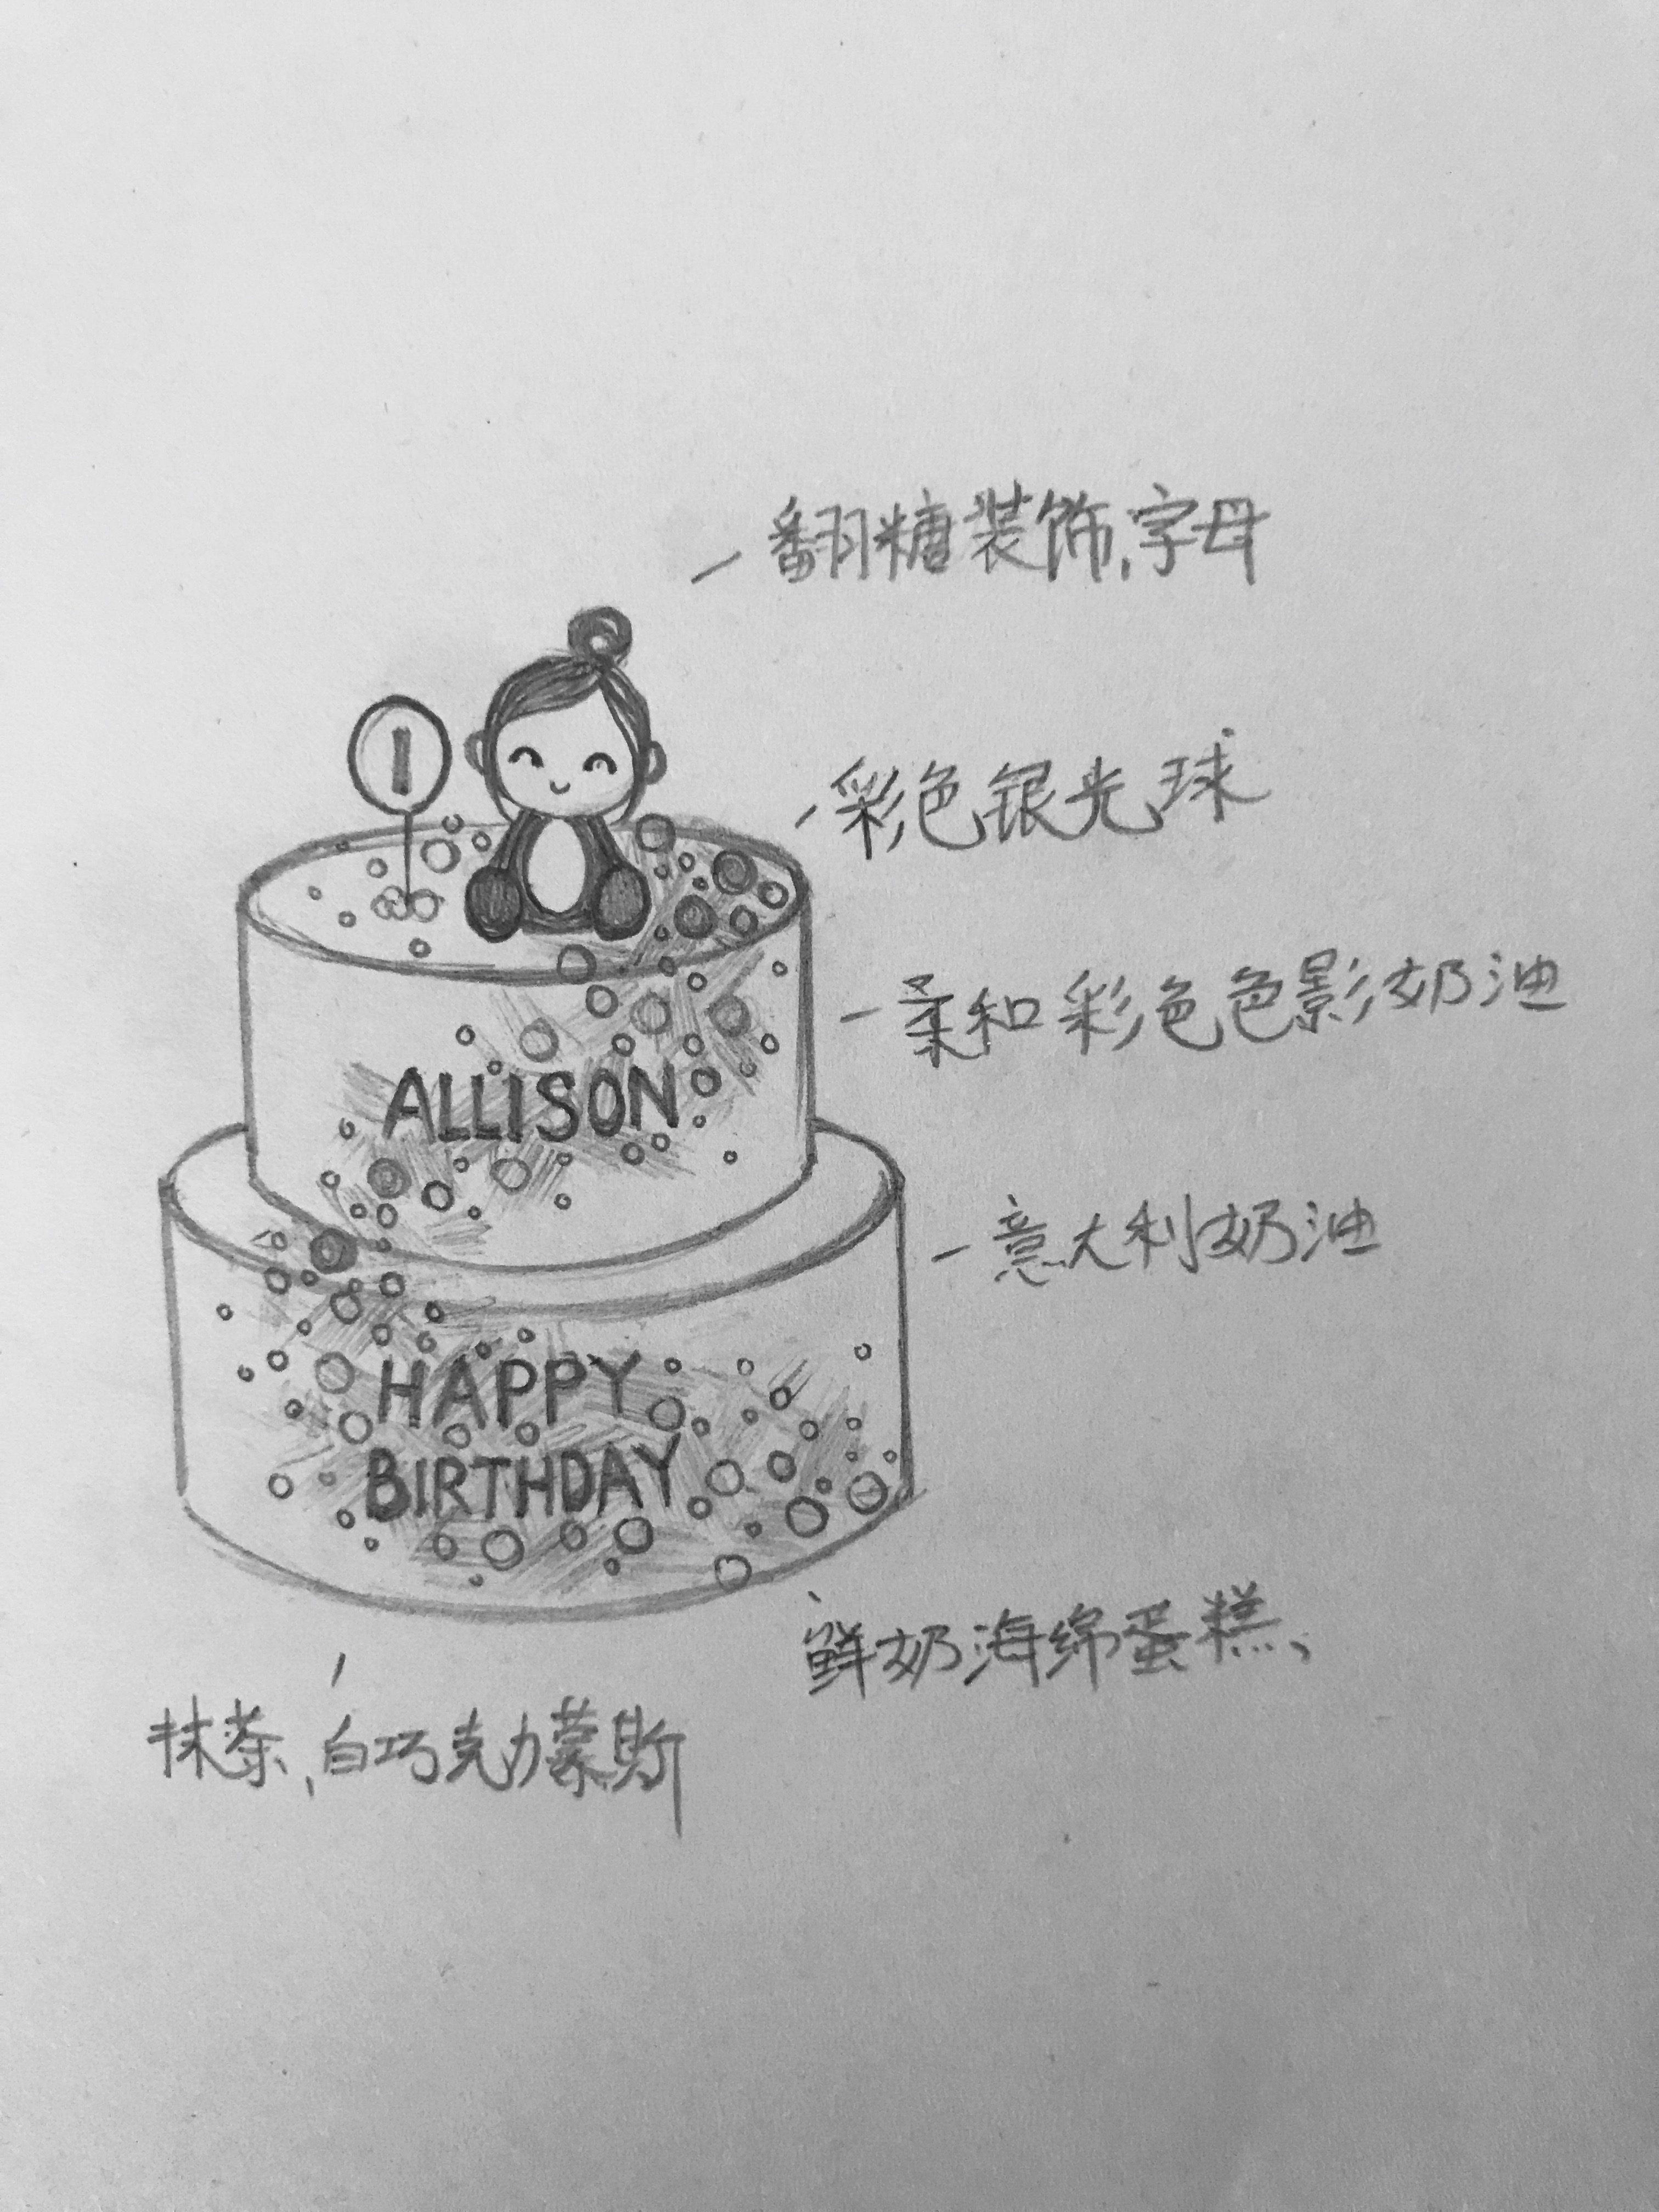 翻糖装饰,字母
1
彩色银光球
柔和彩色色影奶油
ALLISON
意大利奶油
HAPPY
BIRTHDAY
鲜奶海绵蛋糕、
抹茶,白巧克力蒙斯